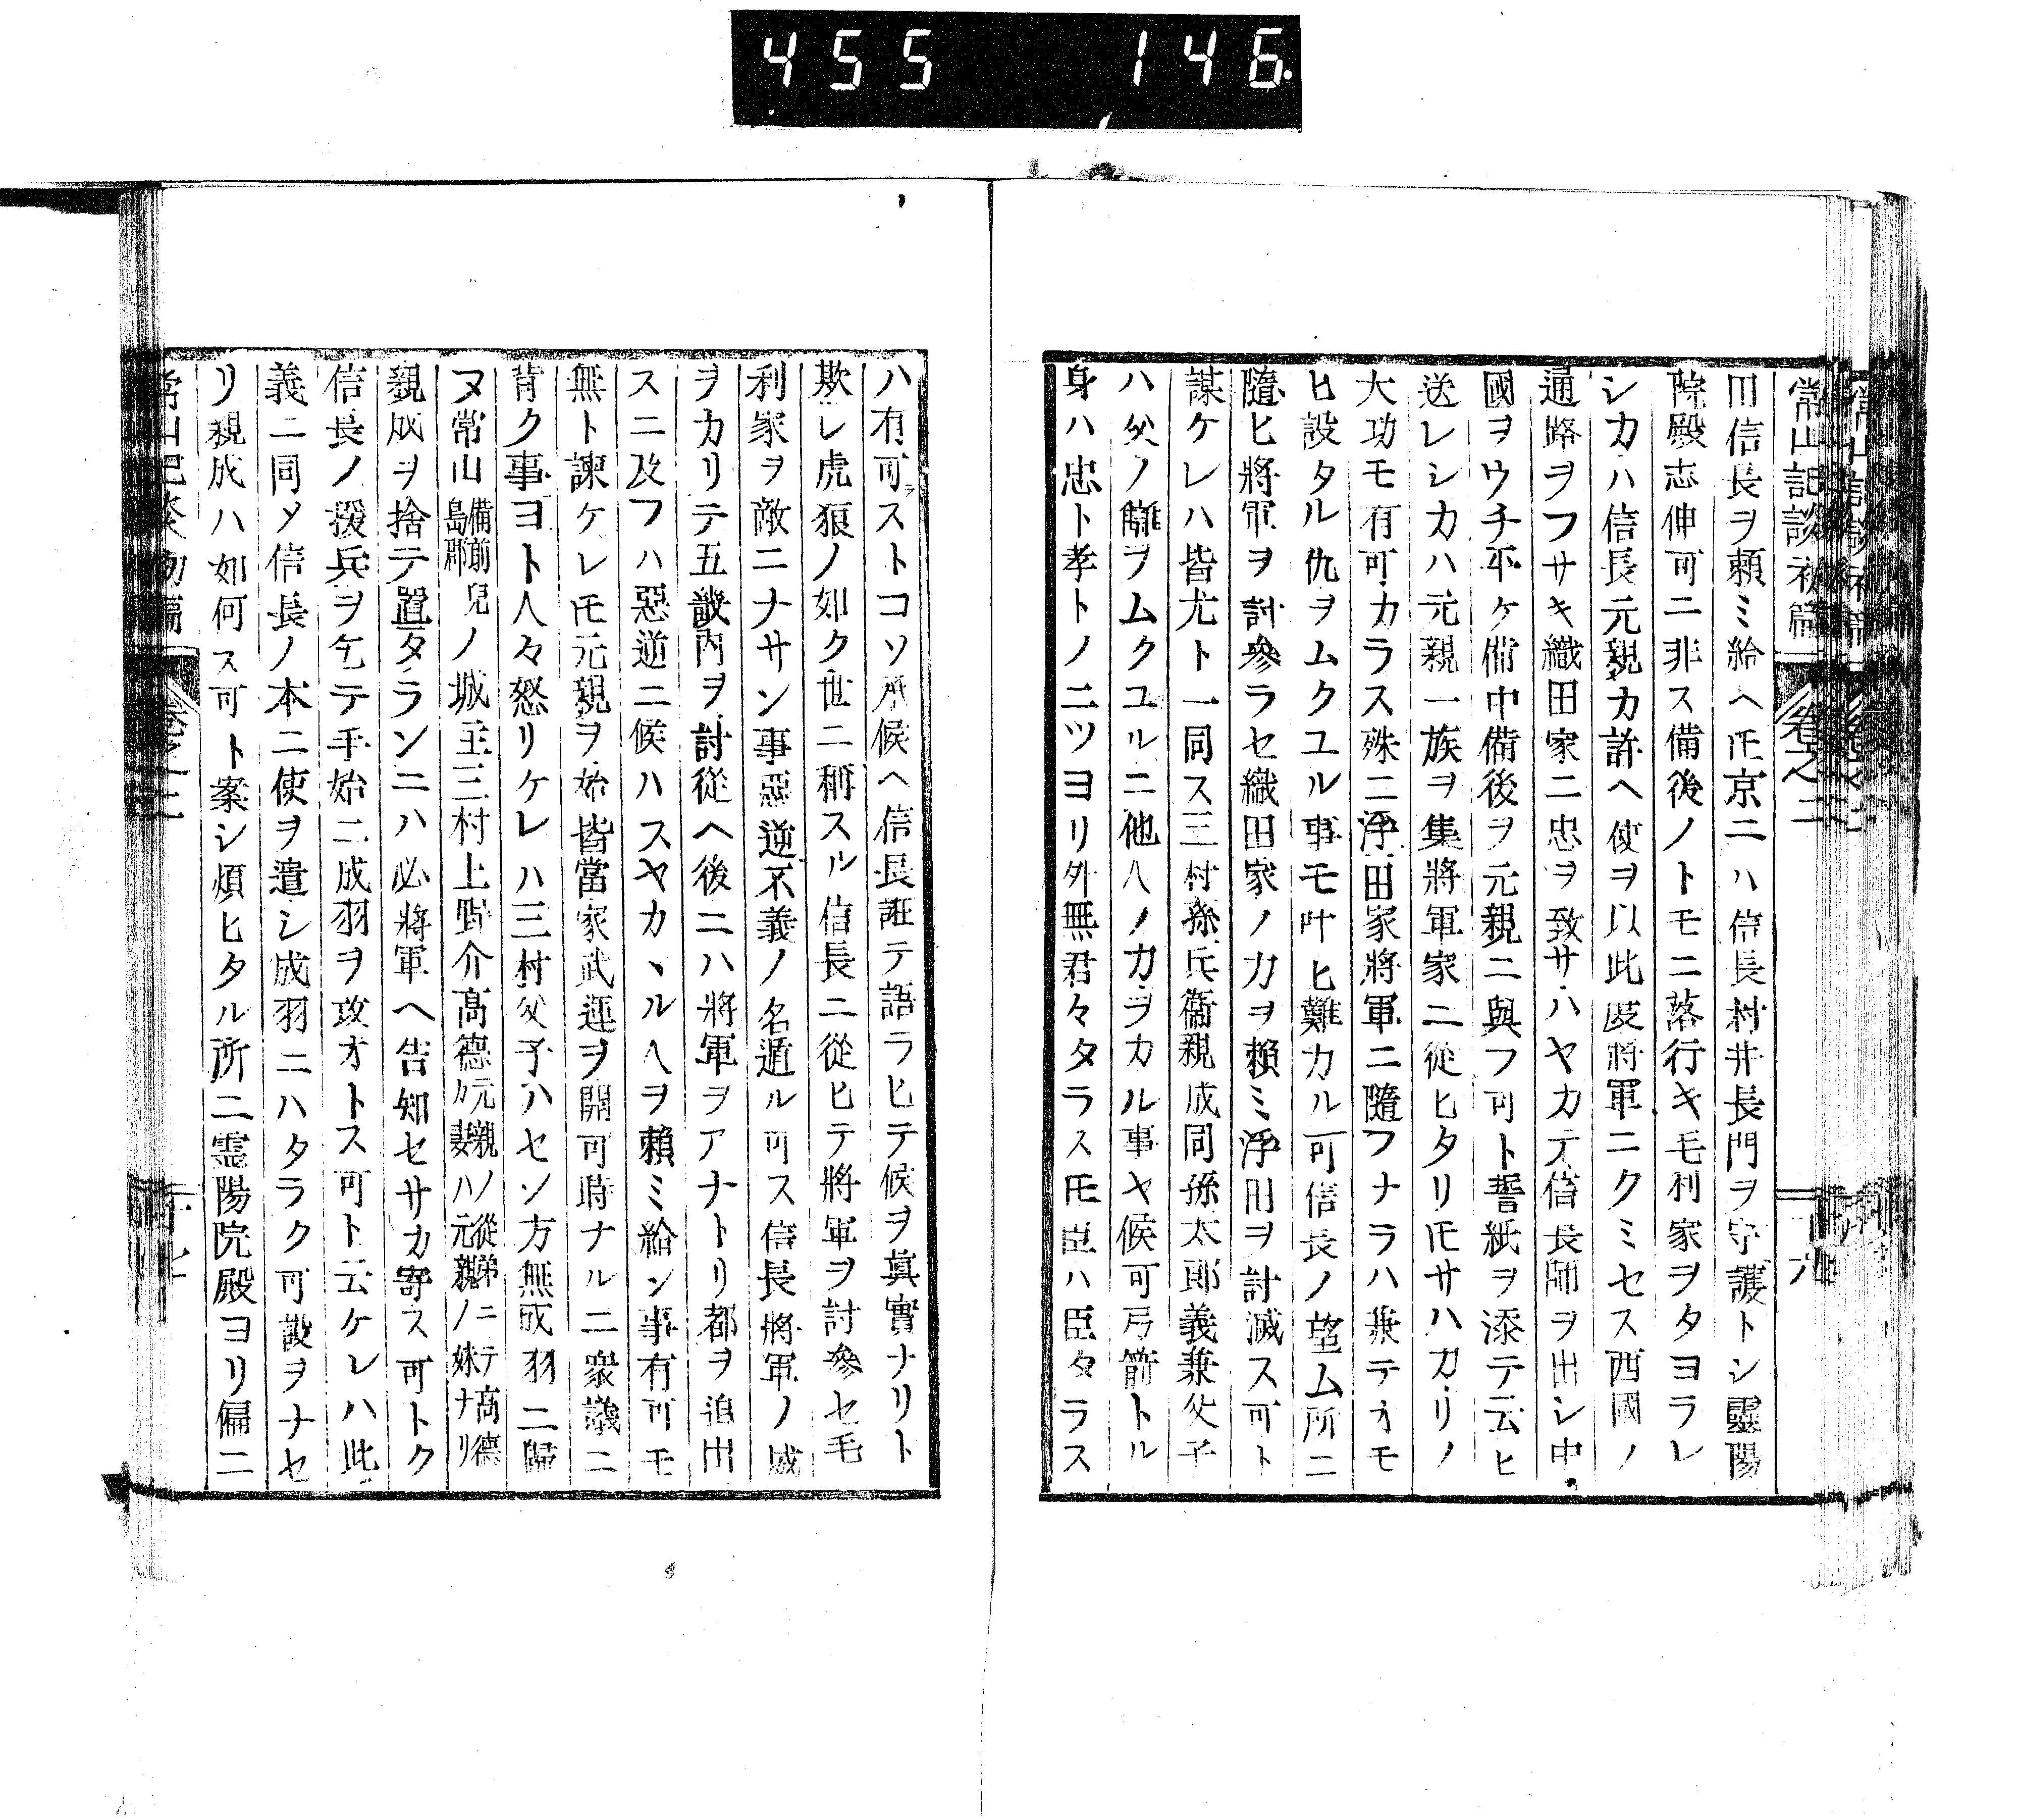 455 146
常山記談初篇 卷之二 十六
田信長ヲ頼ミ給ヘ𪜈京ニハ信長村井長門ヲ守護トシ靈陽
院殿志伸可ニ非ス備後ノトモニ落行キ毛利家ヲタヨラレ
シカハ信長元親カ許ヘ使ヲ以此度將軍ニクミセス西國ノ
通路ヲフサキ織田家ニ忠ヲ致サハヤカテ信長師ヲ出シ中
國ヲウチ平ケ備中備後ヲ元親ニ與フ可ト誓紙ヲ添テ云ヒ
送レシカハ元親一族ヲ集將軍家ニ從ヒタリ𪜈サハカリノ
大功モ有可カラス殊ニ浮田家將軍ニ隨フナラハ兼テオモ
ヒ設タル仇ヲムクユル事モ叶ヒ難カル可信長ノ望ム所ニ
隨ヒ將軍ヲ討參ラセ織田家ノ力ヲ頼ミ浮田ヲ討滅ス可ト
謀ケレハ皆尤ト一同ス三村孫兵衞親成同孫太郎義兼父子
ハ父ノ讎ヲムクユルニ他人ノ力ヲカル事ヤ候可弓箭トル
身ハ忠ト孝トノ二ツヨリ外無君々タラス𪜈臣ハ臣タラス
ハ有可ラストコソ承候ヘ信長誑テ語ラヒテ候ヲ眞實ナリト
欺レ虎狼ノ如ク世ニ稱スル信長ニ從ヒテ將軍ヲ討參セ毛
利家ヲ敵ニナサン事惡逆不義ノ名遁ル可ス信長將軍ノ威
ヲカリテ五畿内ヲ討從ヘ後ニハ將軍ヲアナトリ都ヲ追出
スニ及フハ惡逆ニ候ハスヤカヽル人ヲ頼ミ給ン事有可モ
無ト諫ケレ𪜈元親ヲ始皆當家武運ヲ開可時ナルニ衆議ニ
背ク事ヨト人々怒リケレハ三村父子ハセン方無成羽ニ歸
ヌ常山備前兒島郡ノ城主三村上野介高德元親ノ從弟ニテ高德カ妻ハ元親ノ妹ナリ
親成ヲ捨テ置タランニハ必將軍ヘ告知セサカ寄ス可トク
信長ノ援兵ヲ乞テ手始ニ成羽ヲ攻オトス可ト云ケレハ此
義ニ同メ信長ノ本ニ使ヲ遣シ成羽ニハタラク可設ヲナセ
リ親成ハ如何ス可ト案シ煩ヒタル所ニ霊陽院殿ヨリ偏ニ